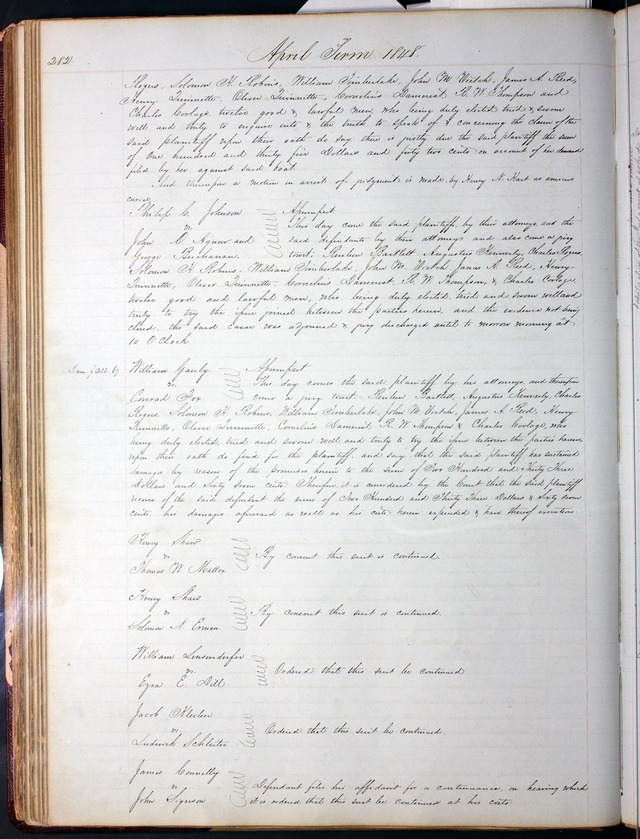 282
April Term 1848.
Rogers, Solomon H. Robins, William Timberlake, John M. Veitch, James A. Reed,
Henry Quinnette, Oliver Quinnette, Cornelius Damerest, R. W. Thompson and
Charles Coolage, twelve good & lawful men, who being duly elected tried & sworn
well and truly to enquire into & the truth to speak of & concerning the claim of the
said plaintiff upon their oath do say there is justly due the said plaintiff the sum
of One hundred and thirty five Dollars and forty two cents on account of her demand
filed by her against said boat.
And thereupon a motion in arrest of judgment is made by Henry N. Hart as amicus
curiae
Philip C. Johnson Assumpsit
vs. This day come the said plaintiff, by their attorneys and the
John C. Agnew and said defendants by their attorneys and also come a jury
George Buchanan towit; Reuben Bartlett, Augustus Kennerly, Charles Rogers
Solomon H. Robins, William Timberlake, John M. Veitch, James A. Reed, Henry
Quinnette, Oliver Quinnette, Cornelius Damerest, R. W. Thompson, & Charles Coolage
twelve good and lawful men, who being duly elected, tried and sworn well and
truly to try the issue joined between the parties herein, and the evidence not being
closed, the said cause was adjourned & jury discharged until to morrow morning at
10 O'Clock.
Dam. $233. 67 William Gauly Assumpsit
vs. This day comes the said plaintiff by his attorneys, and thereupon
Conrad Fox come a jury towit: Reuben Bartlett, Augustus Kennerly, Charles
Rogers, Solomon H. Robins, William Timberlake, John M. Veitch, James A. Reed, Henry
Quinnette, Oliver Quinnette, Cornelius Damerest, R. W. Thompson & Charles Coolage, who
being duly elected, tried and sworn well and truly to try the issue between the parties herein
upon their oath do find for the plaintiff, and say that the said plaintiff has sustained
damages by reason of the premises herein to the sum of Two Hundred and Thirty Three
Dollars and Sixty seven cents. Therefore it is considered by the Court that the said plaintiff
recover of the said defendant the sum of Two Hundred and Thirty Three Dollars & Sixty seven
cents, his damages aforesaid as well as his costs herein expended & have thereof execution.
Henry Shaw
vs. By consent this suit is continued.
Thomas W. Mattox
Henry Shaw
vs. By consent this suit is continued.
Solomon N.
William
vs. Ordered that this suit be continued.
Ezra E. Dill
Jacob
vs. Ordered that this suit be continued.
Ludwick Schlester
James Connelly
vs. Defendant files his affidavit for a continuance, on hearing which
John Sigerson it is ordered that this suit be continued at his costs.